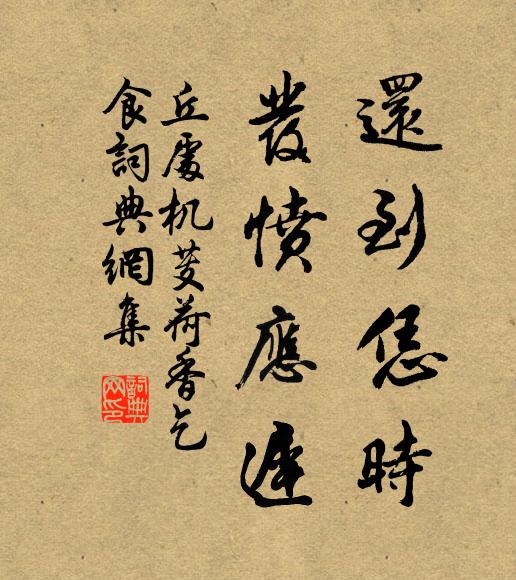 還到恁時
發憤應遲
丘處机芰荷香乞
食詞典網集
詞典
网印